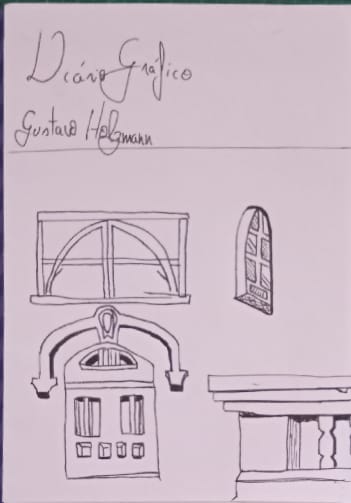 Diário Gráfico
Gustavo Holzmann